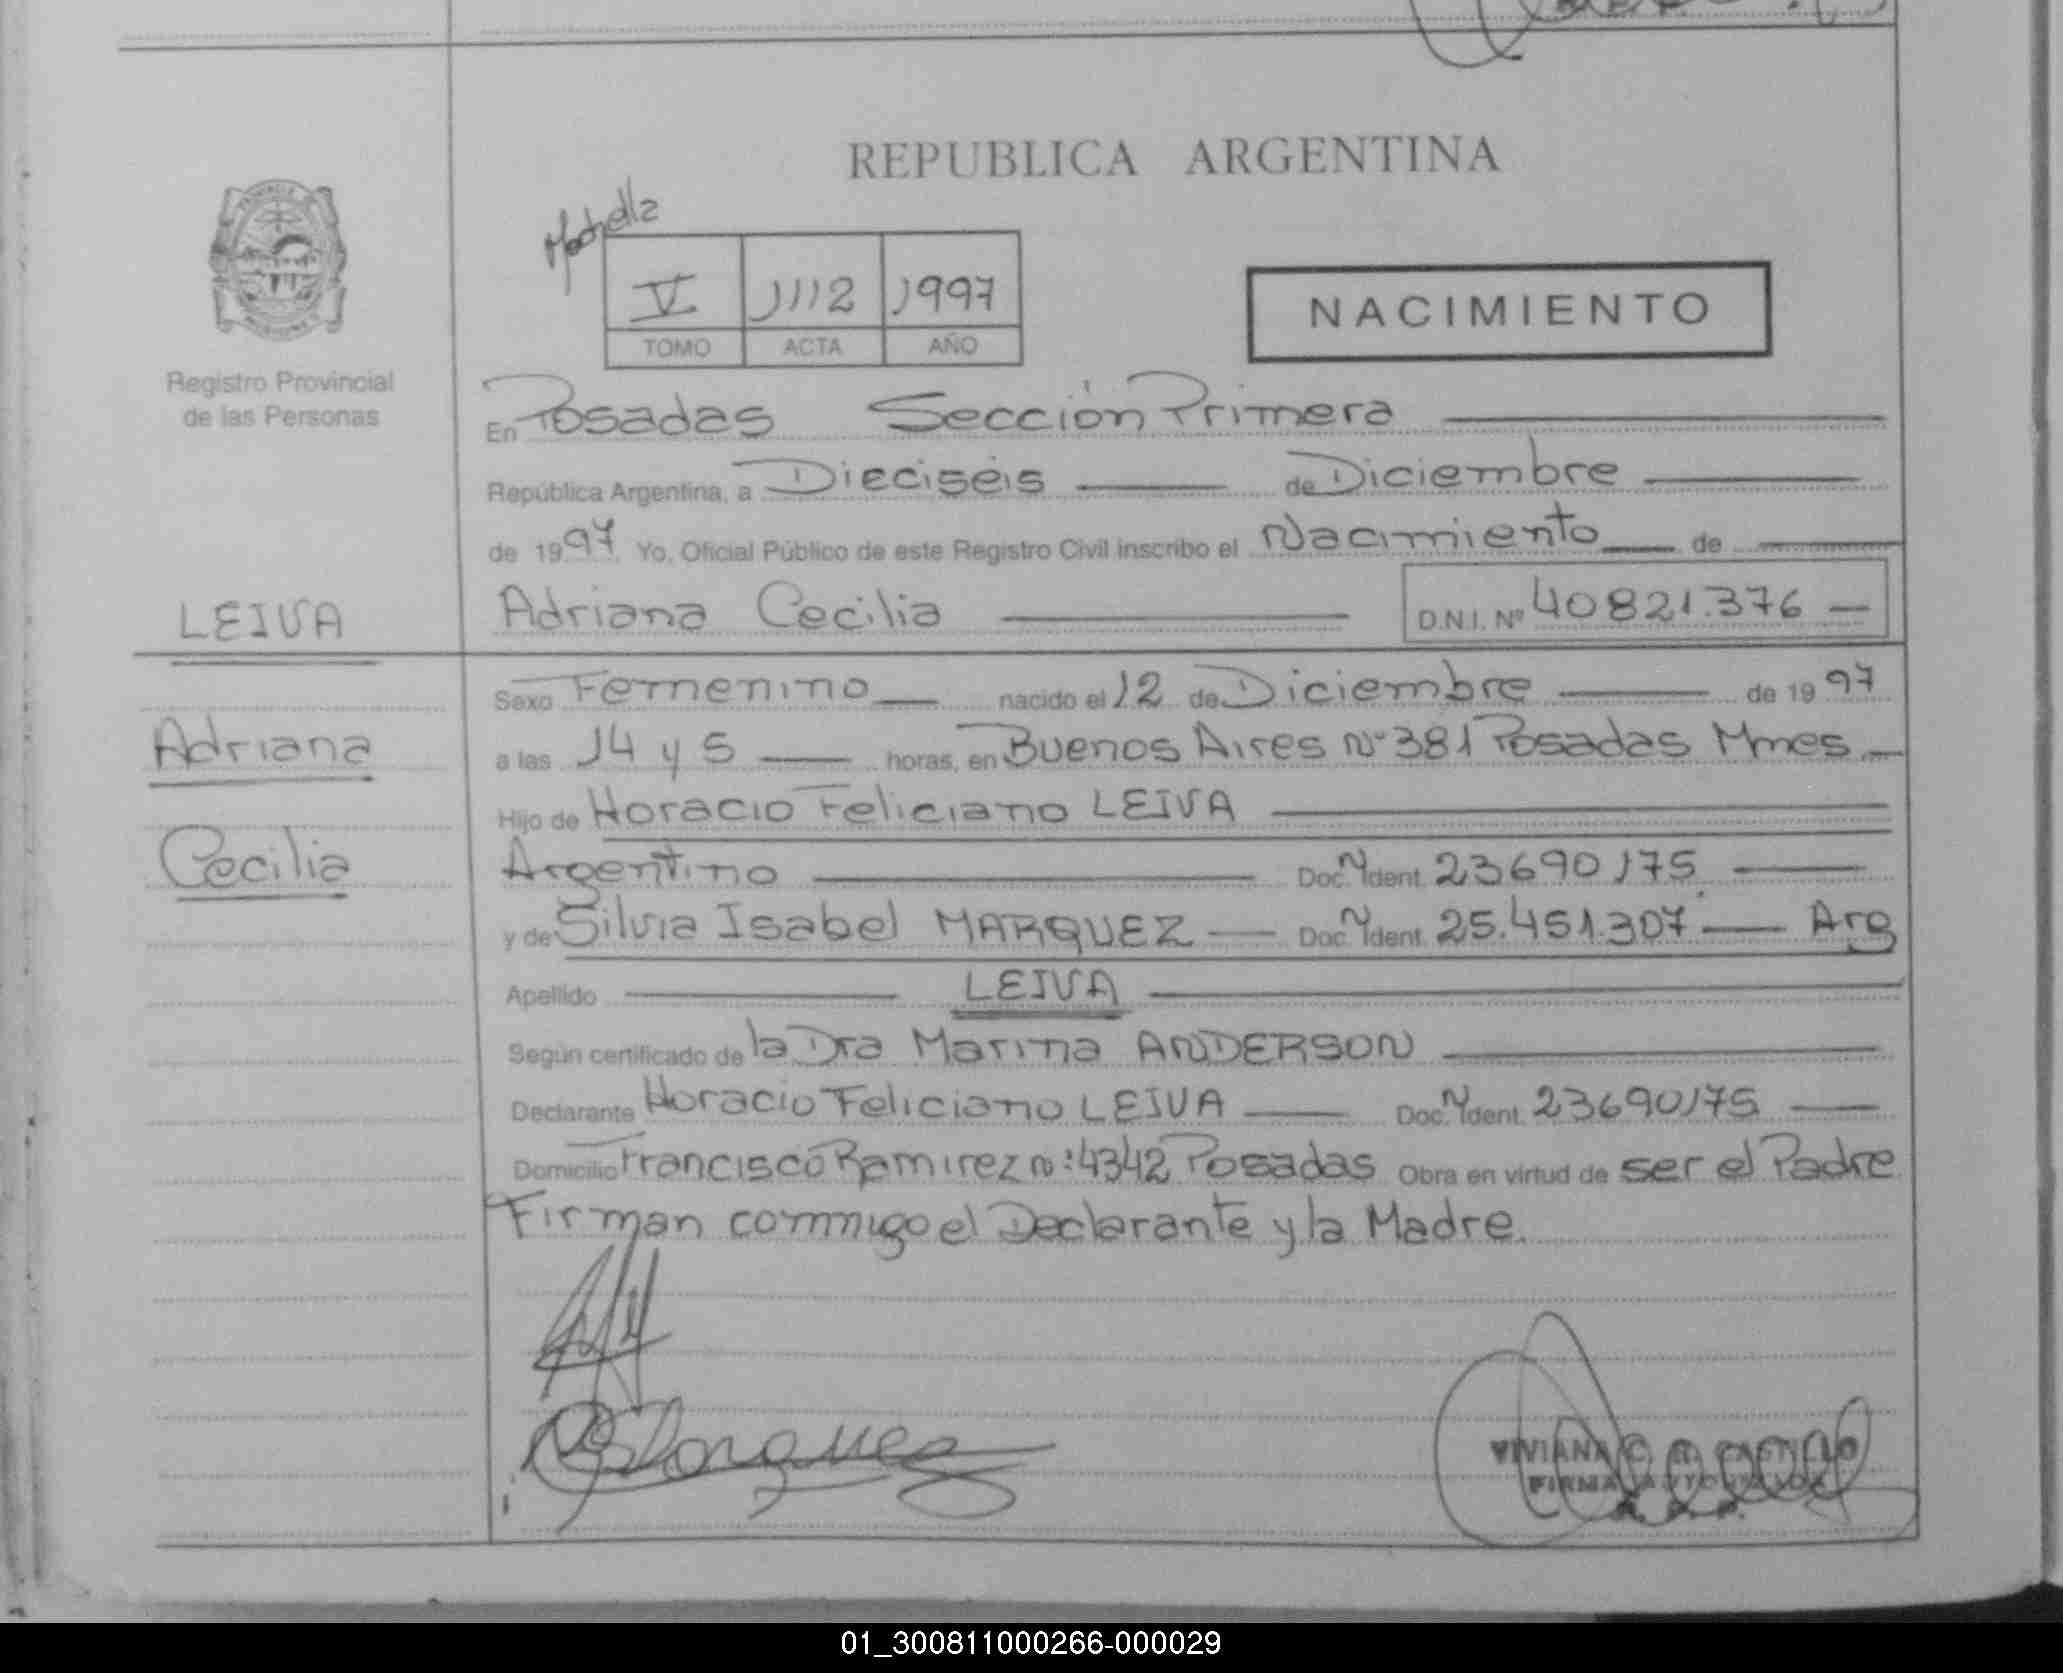 REPUBLICA ARGENTINA
V 1112 1997
TOMO ACTA AÑO
NACIMIENTO
Registro Provincial
de las Personas
En Posadas Sección Primera
República Argentina, a Dieciséis de Diciembre
de 1997 Yo, Oficial Público de este Registro Civil inscribo el Nacimiento de
LEIVA
Adriana Cecilia D.N.I. Nº 40821.376
Sexo Femenino nacido el 12 de Diciembre de 1997
Adriana
a las 14 y 5 horas, en Buenos Aires Nº 381 Posadas Mnes
Hijo de Horacio Feliciano LEIVA
Cecilia
Argentino Doc. Ident. 23690175
y de Silvia Isabel MARQUEZ Doc. Ident. 25.451.307 Arg
Apellido LEIVA
Según certificado de la Dra Marina ANDERSON
Declarante Horacio Feliciano LEIVA Doc. Ident. 23690175
Domicilio Francisco Ramirez nº 4342 Posadas Obra en virtud de ser el Padre
Firman conmigo el Declarante y la Madre.
VIVIANA C. CASTILLO
FIRMA AUTORIZADA
01_300811000266-000029